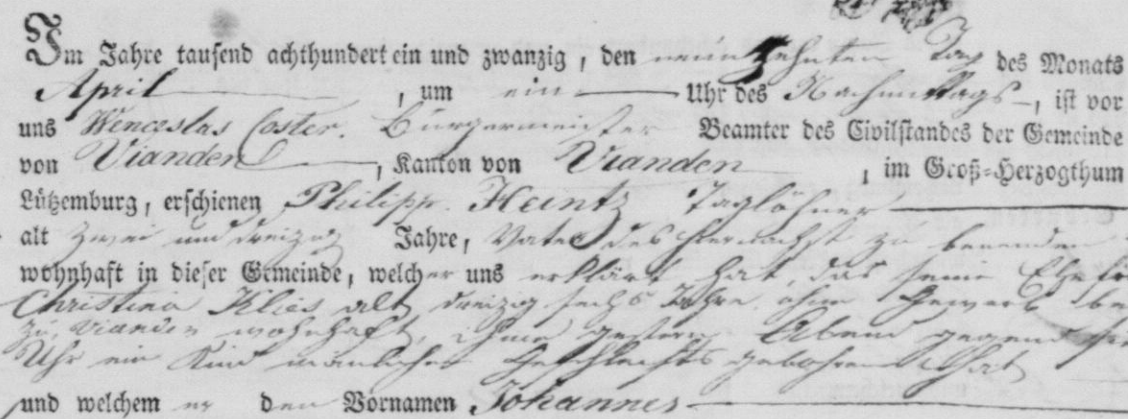 Im Jahre tausend achthundert ein und zwanzig, den neunzehnten Tag des Monats
April, um ein Uhr des Nachmittags, ist vor
uns Wenceslas Coster, Bürgermeister Beamter des Civilstandes der Gemeinde
von Vianden, Kanton von Vianden, im Groß-Herzogthum
Lützemburg, erschienen Philipp Heintz Taglöhner
alt zwei und dreizig Jahre, Vater des hiernächst zu benenden
wohnhaft in dieser Gemeinde, welcher uns erklärt hat, das seine
Christina alt dreizig sechs Jahre, ohne Gewerb
zu Vianden wohnhaft, gestern Abend gegen
Uhr ein Kind mänlichen Geschlechts gebohren hat
und welchem er den Vornamen Johannes